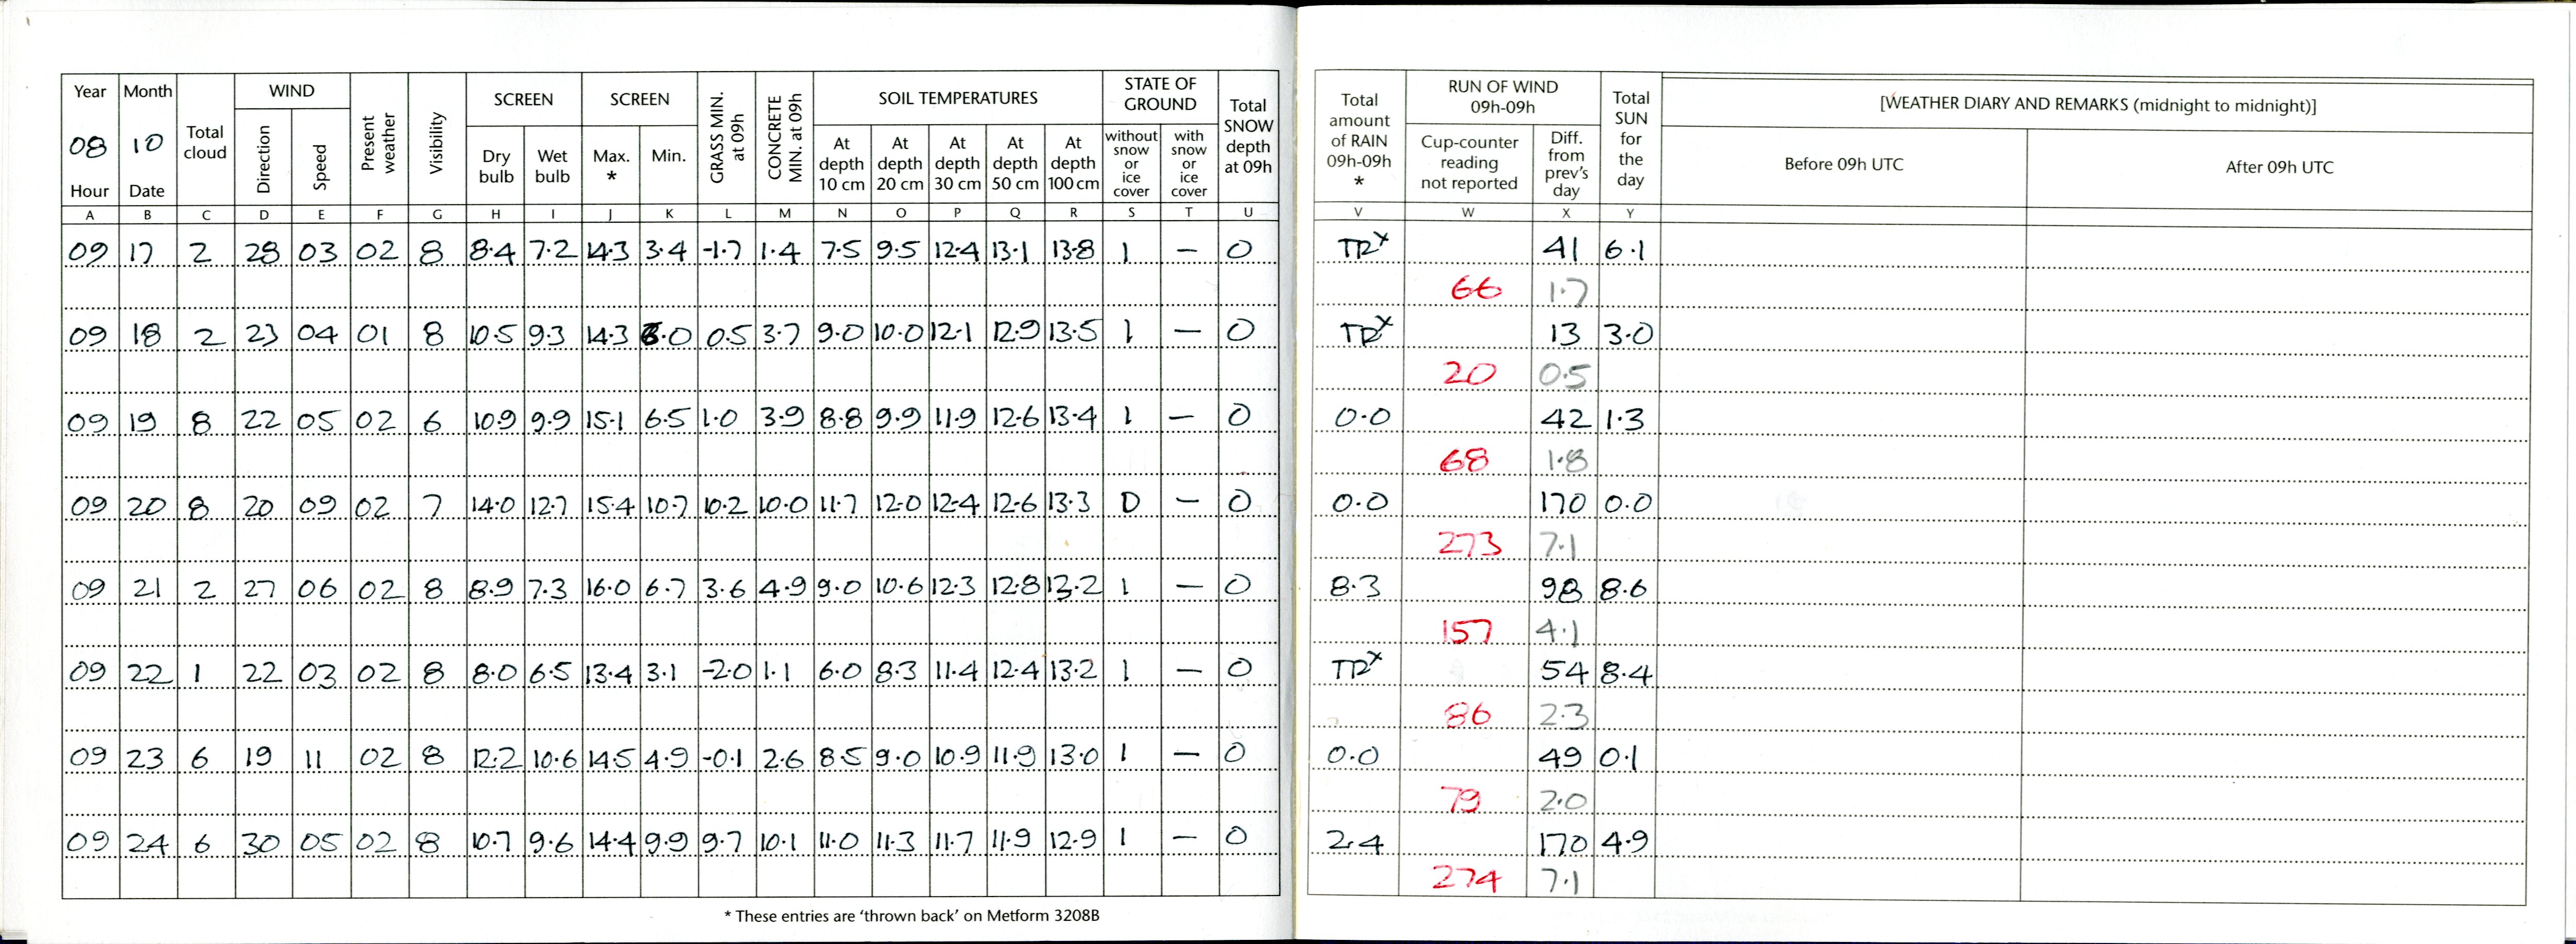 Year Month Total cloud WIND Present weather Visibility SCREEN SCREEN GRASS MIN. at 09h CONCRETE MIN. at 09h SOIL TEMPERATURES STATE OF GROUND Total SNOW depth at 09h Total amount of RAIN 09h-09h * RUN OF WIND 09h-09h Total SUN for the day [WEATHER DIARY AND REMARKS (midnight to midnight)]
08 10
Hour Date Direction Speed Dry bulb Wet bulb Max. * Min. At depth 10 cm At depth 20 cm At depth 30 cm At depth 50 cm At depth 100 cm without snow or ice cover with snow or ice cover Cup-counter reading not reported Diff. from prev's day Before 09h UTC After 09h UTC
A B C D E F G H I J K L M N O P Q R S T U V W X Y
09 17 2 28 03 02 8 8.4 7.2 14.3 3.4 -1.7 1.4 7.5 9.5 12.4 13.1 13.8 1 — 0 TRx 41 6.1
66 1.7
09 18 2 23 04 01 8 10.5 9.3 14.3 6.0 0.5 3.7 9.0 10.0 12.1 12.9 13.5 1 — 0 TRx 13 3.0
20 0.5
09 19 8 22 05 02 6 10.9 9.9 15.1 6.5 1.0 3.9 8.8 9.9 11.9 12.6 13.4 1 — 0 0.0 42 1.3
68 1.8
09 20 8 20 09 02 7 14.0 12.7 15.4 10.7 10.2 10.0 11.7 12.0 12.4 12.6 13.3 0 — 0 0.0 170 0.0
273 7.1
09 21 2 27 06 02 8 8.9 7.3 16.0 6.7 3.6 4.9 9.0 10.6 12.3 12.8 13.2 1 — 0 8.3 98 8.6
157 4.1
09 22 1 22 03 02 8 8.0 6.5 13.4 3.1 -2.0 1.1 6.0 8.3 11.4 12.4 13.2 1 — 0 TRx 54 8.4
86 2.3
09 23 6 19 11 02 8 12.2 10.6 14.5 4.9 -0.1 2.6 8.5 9.0 10.9 11.9 13.0 1 — 0 0.0 49 0.1
79 2.0
09 24 6 30 05 02 8 10.7 9.6 14.4 9.9 9.7 10.1 11.0 11.3 11.7 11.9 12.9 1 — 0 2.4 170 4.9
274 7.1
* These entries are ‘thrown back’ on Metform 3208B